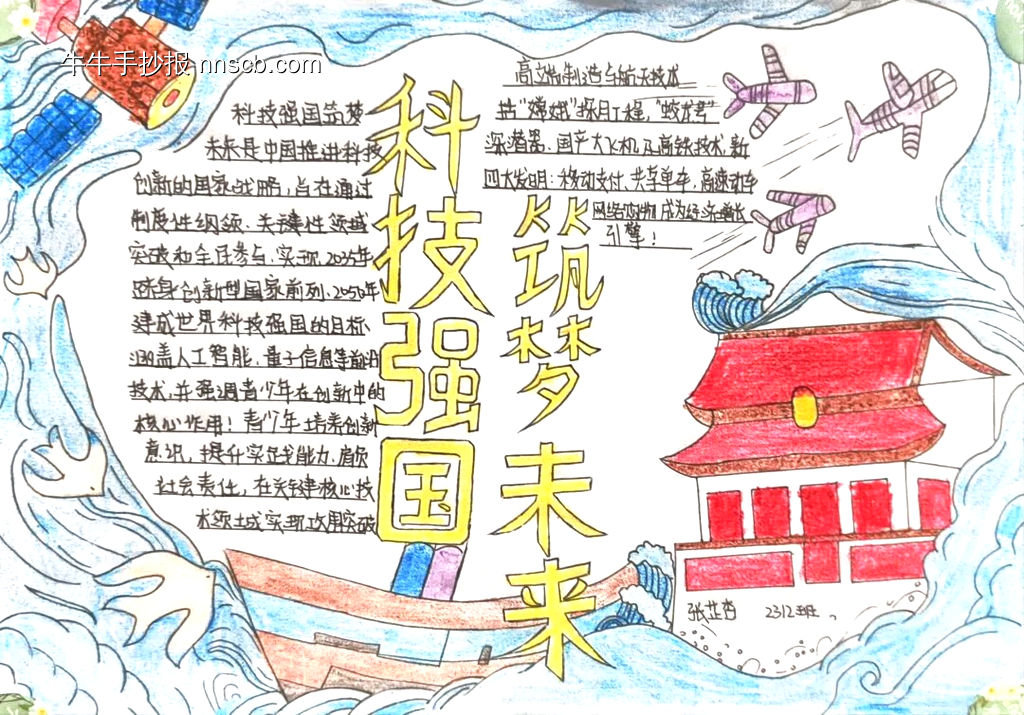 牛牛手抄报 nnscb.com
科技强国
筑梦未来
科技强国筑梦
未来是中国推进科技
创新的国家战略,旨在通过
制度性纲领、关键性领域
突破和全民参与,实现2035年
跻身创新型国家前列、2050年
建成世界科技强国的目标、
涵盖人工智能、量子信息等前沿
技术,并强调青少年在创新中的
核心作用!青少年培养创新
意识,提升实践能力、肩负
社会责任,在关键核心技
术领域实现攻用突破
高端制造与航天技术
括"嫦娥"探月工程,"蛟龙号"
深潜器、国产大飞机及高铁技术,新
四大发明:移动支付、共享单车,高速动车
网络购物成为经济增长
引擎!
张芷杏 2312班。